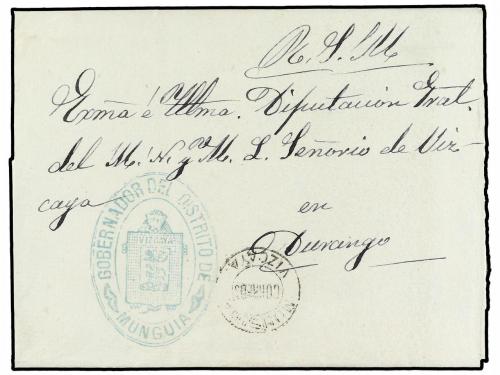 R. S. M
Exmã é Ylma. Diputación Gral.
del M. N. y M. L. Señorio de Viz-
caya en
Durango
GOBERNADOR DEL DISTRITO DE
VIZCAYA
MUNGUIA
VIZCAYA